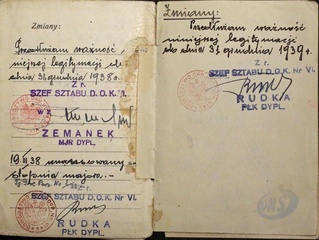 Zmiany:
Przedłużam ważność ni-
niejszej legitymacji do
dnia 31 grudnia 1938 r.
Z r.
SZEF SZTABU D.O.K. VI.
w z.
ZEMANEK
MJR DYPL.
19 III 38 awansowany do
stopnia majora.-
Z r.
SZEF SZTABU D.O.K. Nr VI.
RUDKA
PŁK DYPL.
Zmiany:
Przedłużam ważność
niniejszej legitymacji
do dnia 31 grudnia 1939 r.
Z r.
SZEF SZTABU D.O.K. Nr VI.
RUDKA
PŁK DYPL.